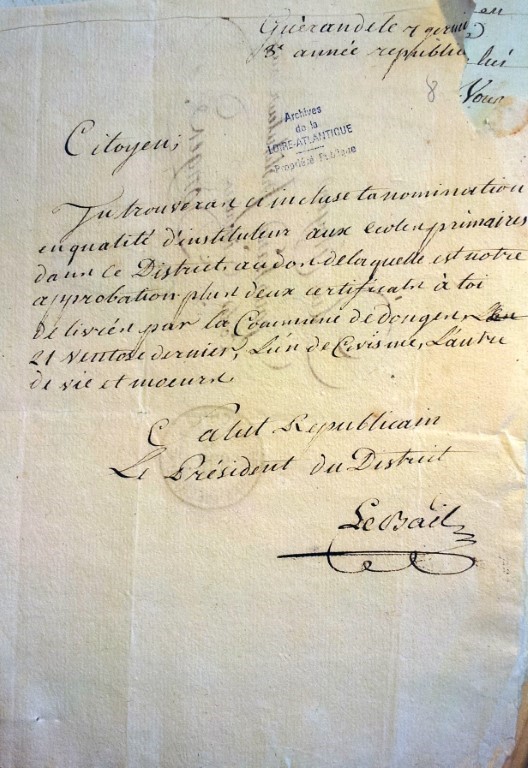 Guérande le 7 germi
3e année republic
lui
8 Vous
Archives
de la
LOIRE-ATLANTIQUE
Propriété Publique
Citoyen,
Tu trouveras ci incluse ta nomination
en qualité d'instituteur aux ecoles primaires
dans ce District, au dos de laquelle est notre
approbation plus deux certificats à toi
délivrés par la Commune de donges
21 Ventose dernier, L'un de Civisme, L'autre
de vie et moeurs.
Salut Republicain
Le Président du District
LeBail